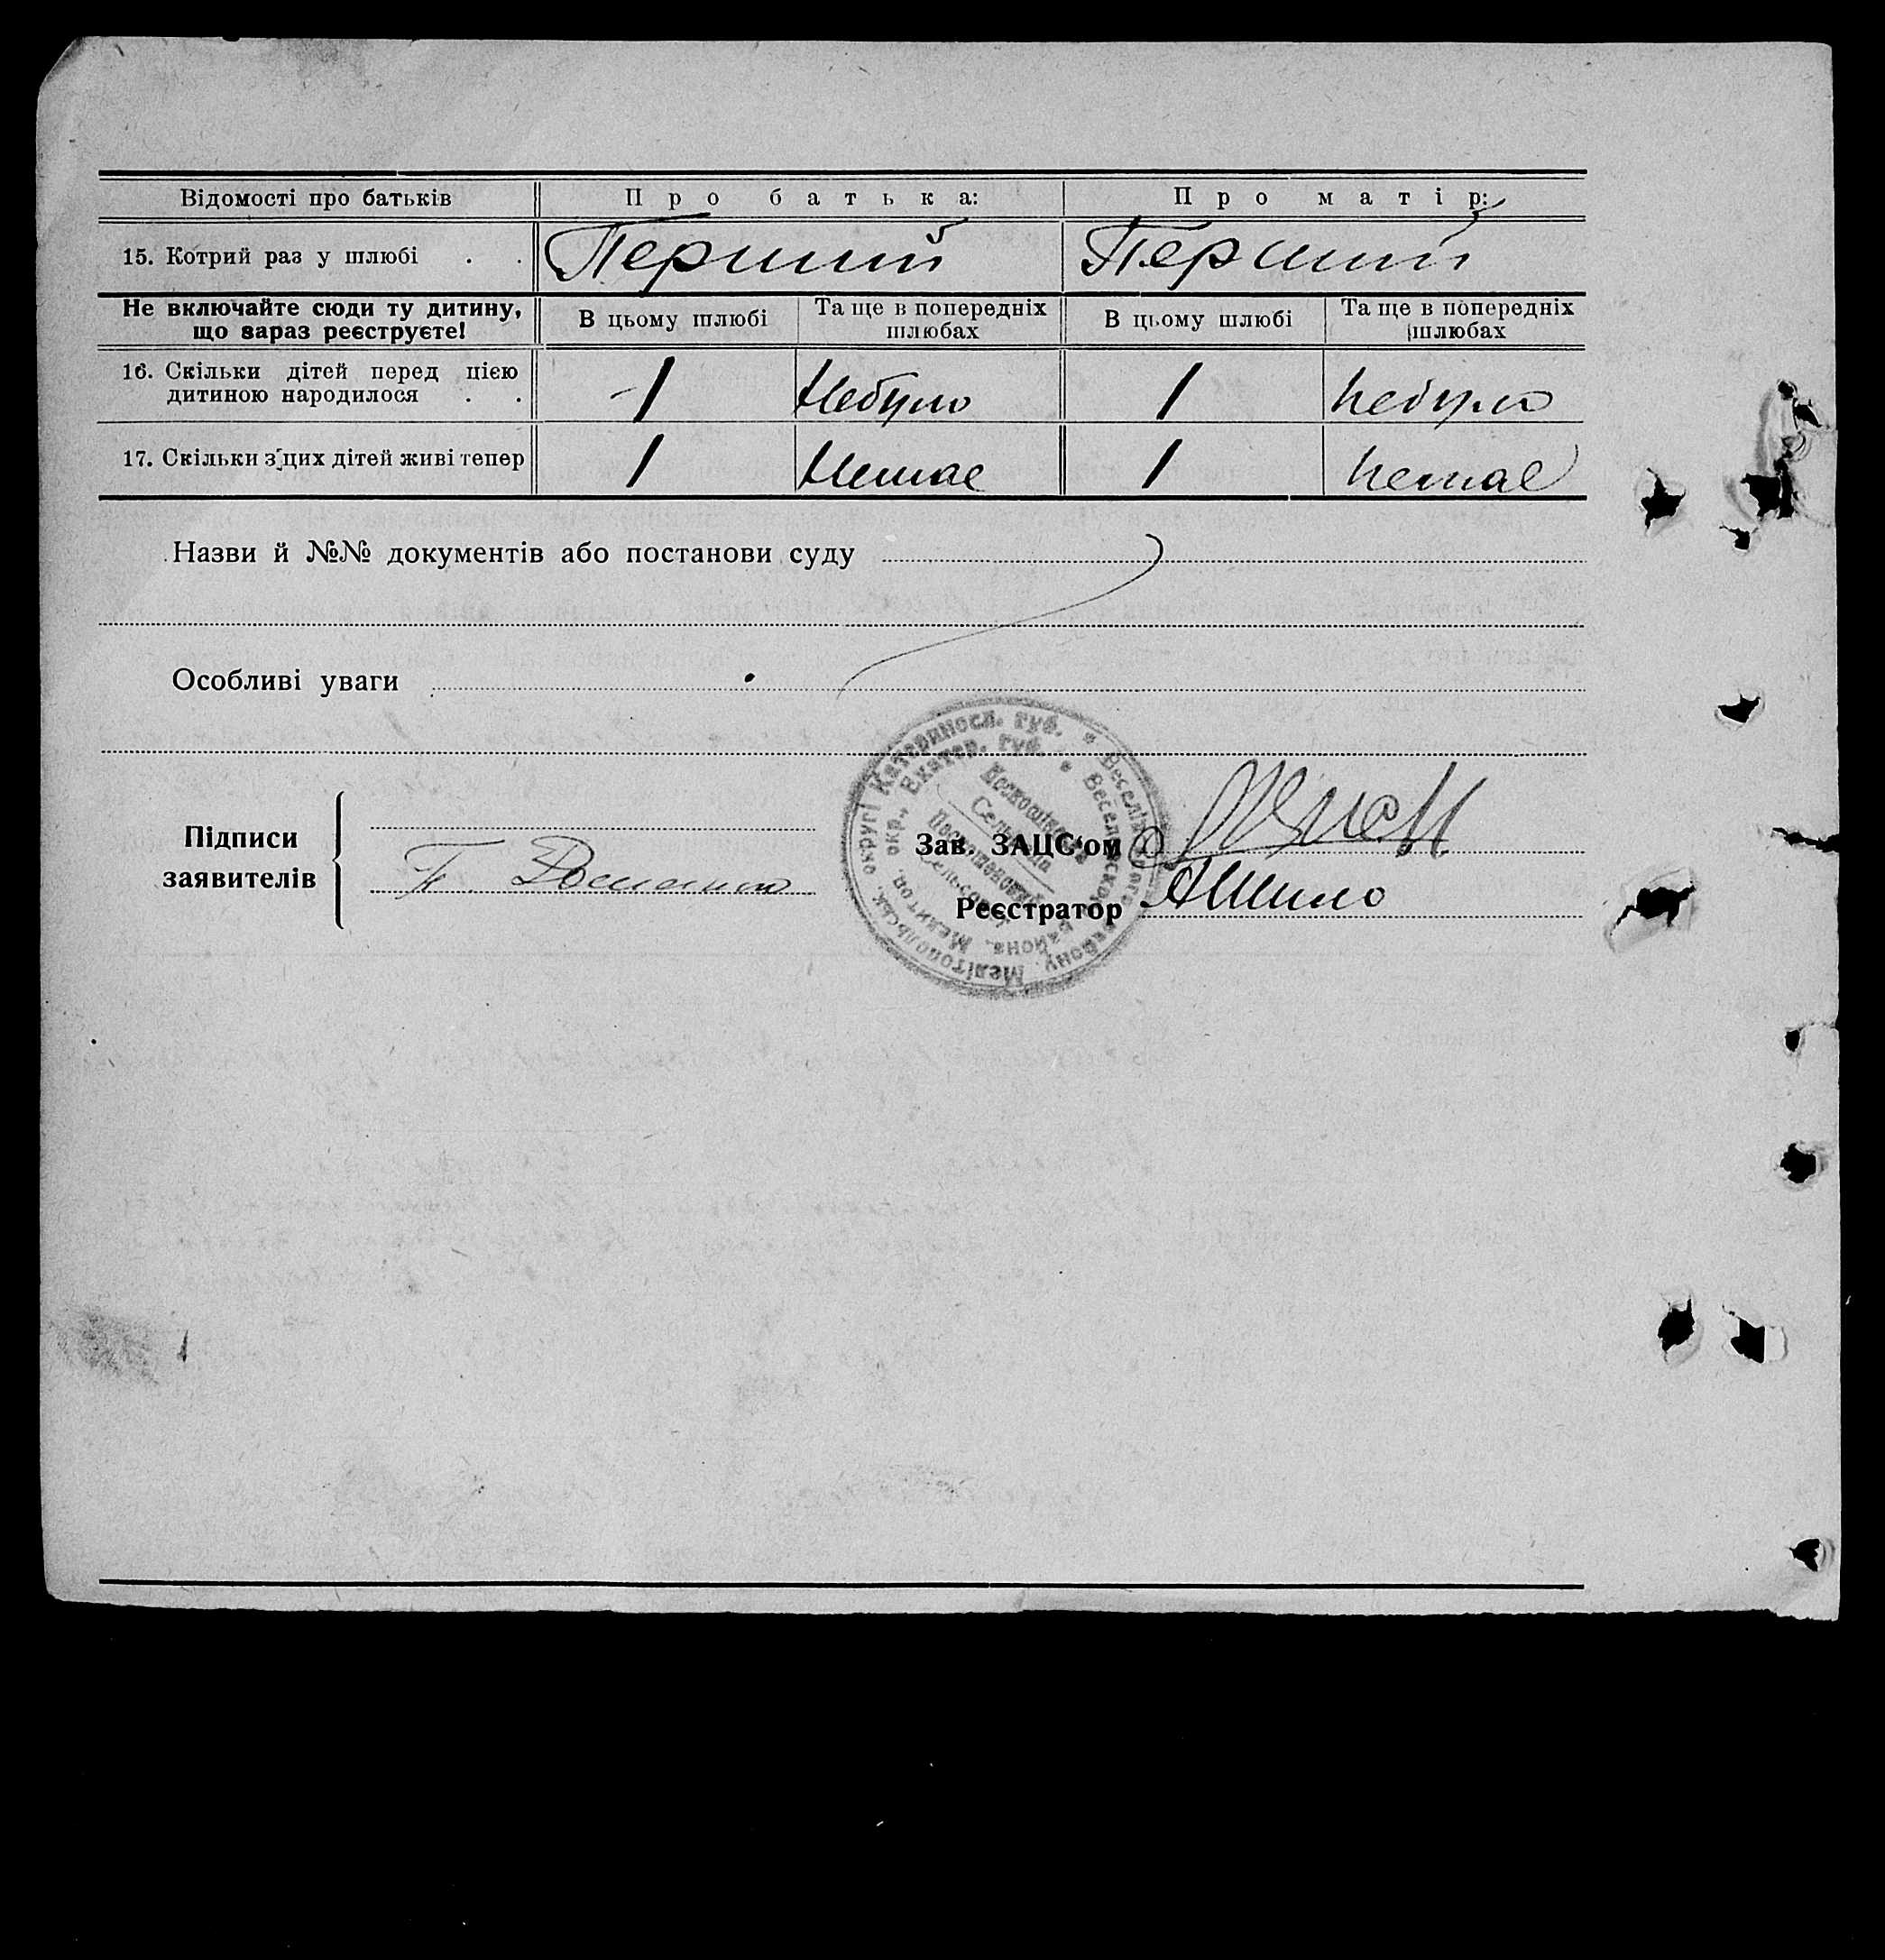 Відомості про батьків Про батька: Про матір:
15. Котрий раз у шлюбі . . Перший Перший
Не включайте сюди ту дитину, що зараз реєструєте! В цьому шлюбі Та ще в попередніх шлюбах В цьому шлюбі Та ще в попередніх шлюбах
16. Скільки дітей перед цією
дитиною народилося . . 1 Небуло 1 Небуло
17. Скільки з цих дітей живі тепер 1 Немає 1 Немає
Назви й №№ документів або постанови суду
Особливі уваги
Катериносл. губ. * Веселівського району, Мелітопольськ. округі
Екатер. губ. * Веселовского района, Мелитоп. окр.,
Сельрада
Сельсовет
Підписи
заявителів
Зав. ЗАЦС'ом
Реєстратор АШило